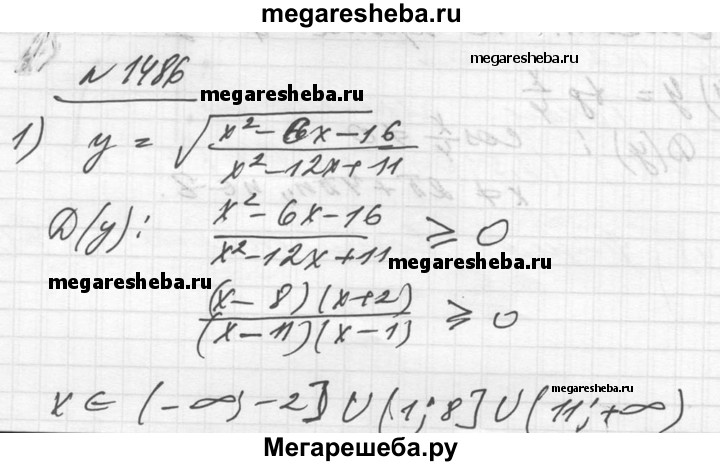 megaresheba.ru
N 1486
megaresheba.ru
1) y = √((x² - 6x - 16)/(x² - 12x + 11))
D(y): (x² - 6x - 16)/(x² - 12x + 11) ⩾ 0
megaresheba.ru
megaresheba.ru
((x - 8)(x + 2))/((x - 11)(x - 1)) ⩾ 0
megaresheba.ru
x ∈ (-∞; -2] ∪ (1; 8] ∪ (11; +∞)
Мегарешеба.ру